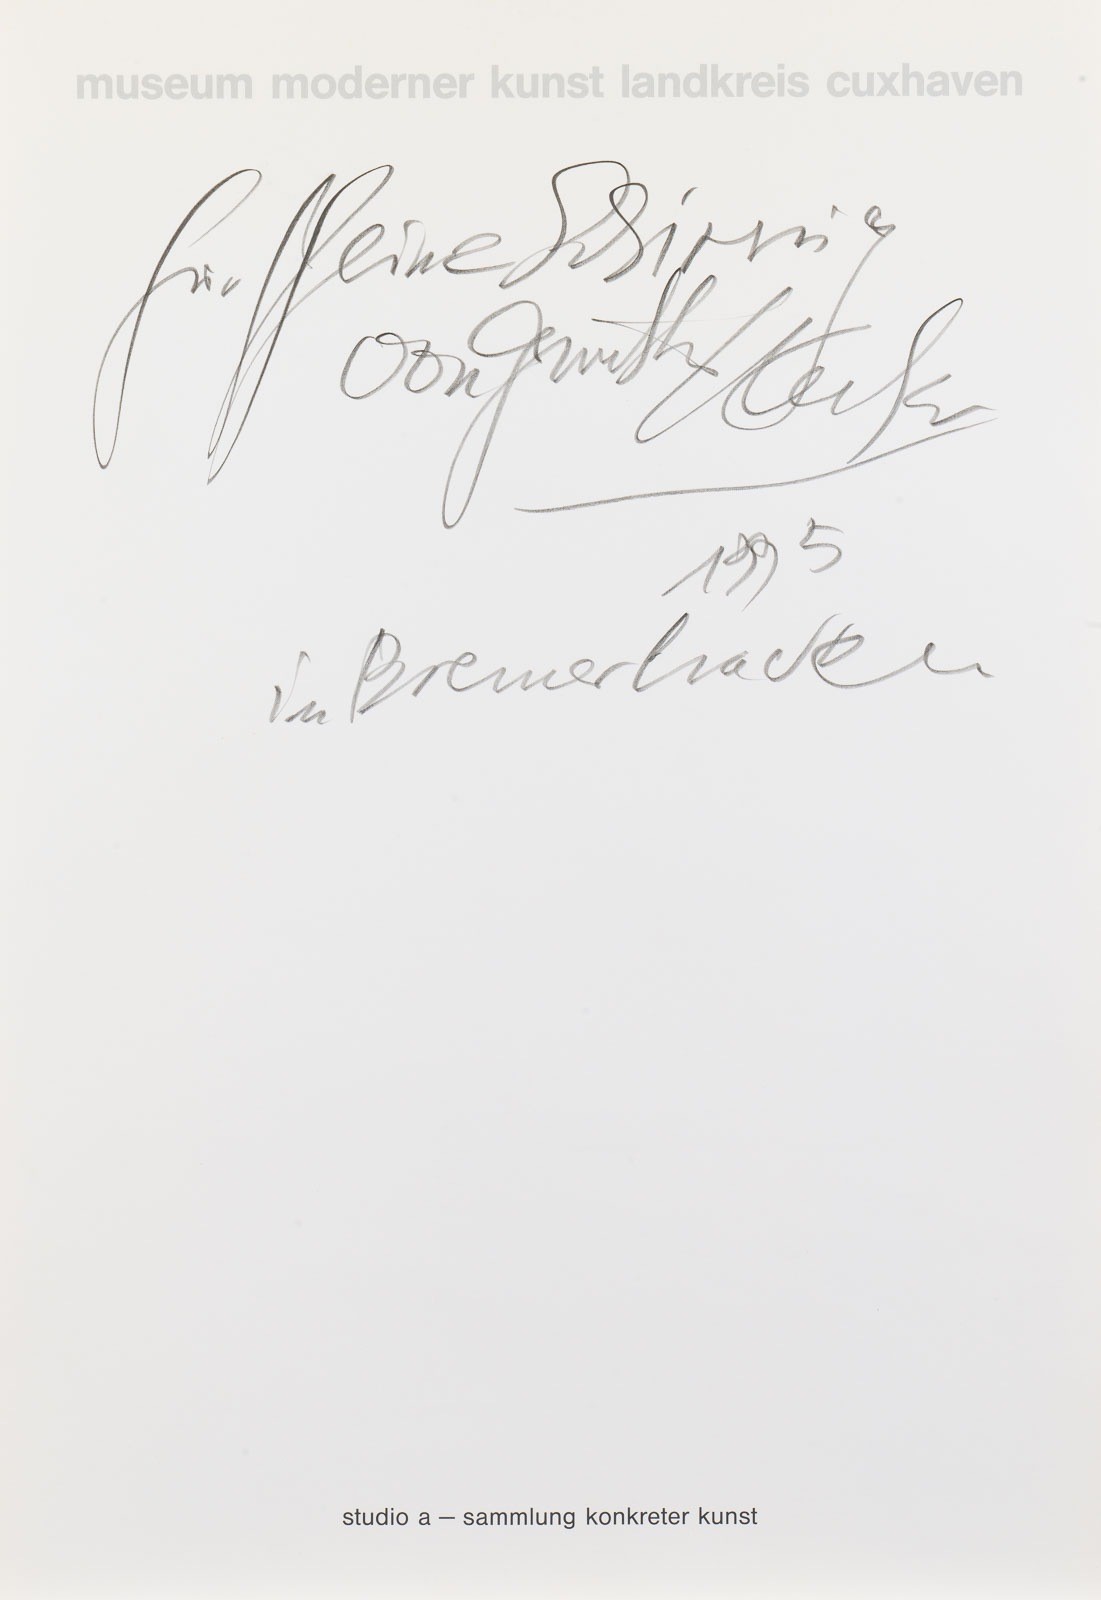 museum moderner kunst landkreis cuxhaven
für Heine
von Günther Uecker
1995
in Bremerhaven
studio a – sammlung konkreter kunst